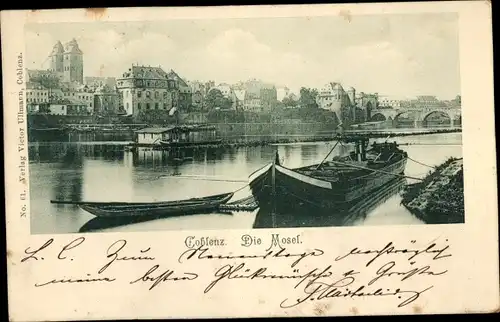 No. 61. Verlag Victor Ullmann, Coblenz.
Coblenz. Die Mosel.
L. C. Zum Namenstage nachträglich
meine besten Glückwünsche & Grüße